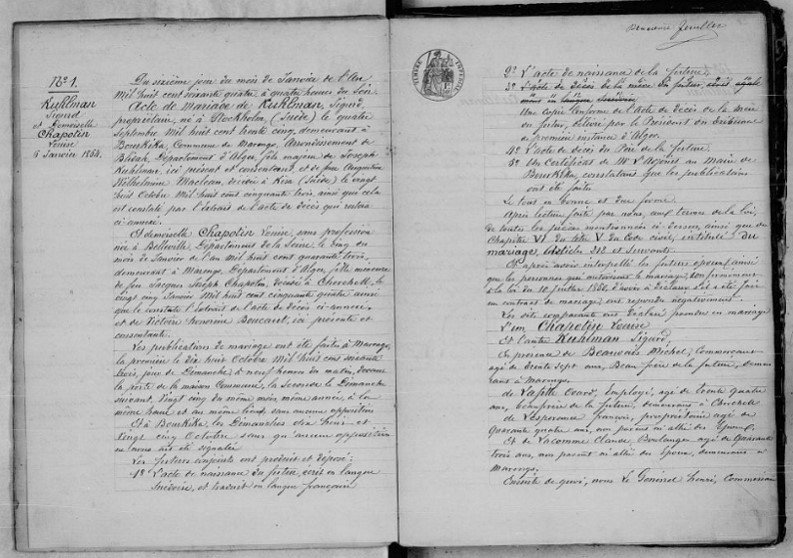 N° 1.
Kuhlman
Sigurd
et Demoiselle
Chapotin
Louise
6 Janvier 1864.
Du sixième jour du mois de Janvier de l'An
Mil huit cent soixante quatre, à quatre heures du Soir
Acte de Mariage de Kuhlman, Sigurd,
propriétaire, né à Stockholm (Suède) le quatre
Septembre Mil huit cent trente cinq, demeurant à
Bourkika, Commune de Marengo, Arrondissement de
Blidah, Département d'Alger, fils majeur de Joseph
Kuhlman, ici présent et consentant, et de feue Augustine
Wilhelmine Maclean, décédée à Kisa (Suède) le vingt
huit Octobre Mil huit cent cinquante trois, ainsi que cela
est constaté par l'Extrait de l'acte de décès qui restera
ci-annexé.
Et demoiselle Chapotin Louise, sans profession
née à Belleville, Département de la Seine, le cinq du
mois de Janvier de l'an mil huit cent quarante trois,
demeurant à Marengo, Département d'Alger, fille mineure
de feu Jacques Joseph Chapotin, décédé à Cherchell, le
vingt cinq Janvier Mil huit cent cinquante quatre ainsi
que le constate l'Extrait de l'acte de décès ci-annexé,
et de Victoire honorine Boucaut, ici présente et
consentante.
Les publications de mariage ont été faites à Marengo,
la première le dix huit Octobre Mil huit cent soixante
trois, jour de Dimanche, à neuf heures du matin, devant
la porte de la maison Commune, la seconde le Dimanche
suivant, vingt cinq du même mois, même année, à la
même heure et au même lieu, sans aucune opposition
Et à Bourkika, les Dimanches dix huit et
vingt cinq Octobre sans qu'aucune opposition
ne leur ait été signalée
Les futurs conjoints ont produit et déposé:
1° L'acte de naissance du futur, écrit en langue
Suédoise, et traduit en langue française
Deuxième feuillet
2° L'acte de naissance de la future,
3° L'acte de décès de la mère du futur,
Une copie conforme de l'acte de décès de la mère
du futur, délivré par le Président du tribunal
de première instance d'Alger.
4° L'acte de décès du Père de la future.
5° Un Certificat de Mr l'Agent au Maire de
Bourkika, constatant que les publications
ont été faites
Le tout en bonne et due forme.
Après lecture faite par nous, aux termes de la loi,
de toutes les pièces mentionnées ci-dessus, ainsi que du
Chapitre VI du titre V du Code civil, intitulé du
mariage, Articles 212 et suivants.
Et après avoir interpellé les futurs époux, ainsi
que les personnes qui autorisent le mariage, conformément
à la loi du 10 Juillet 1850, d'avoir à déclarer s'il a été fait
un contrat de mariage, ont répondu négativement.
Les dits comparants ont déclaré prendre en mariage
L'un, Chapotin Louise
Et l'autre Kuhlman Sigurd,
En présence de Beauvais Michel, Commerçant
agé de trente sept ans, Beau frère de la future, demeu-
rant à Marengo.
de Lafitte Evard, Employé, agé de trente quatre
ans, beau frère de la future, demeurant à Cherchell
de Lesperance françois, propriétaire agé de
Quarante quatre ans, non parent ni allié des Epoux.
Et de Lacomme Claude, Boulanger, agé de Quarante
trois ans, non parent ni allié des Epoux, demeurant à
Marengo.
Ensuite de quoi, nous Le Général henri, Commissaire